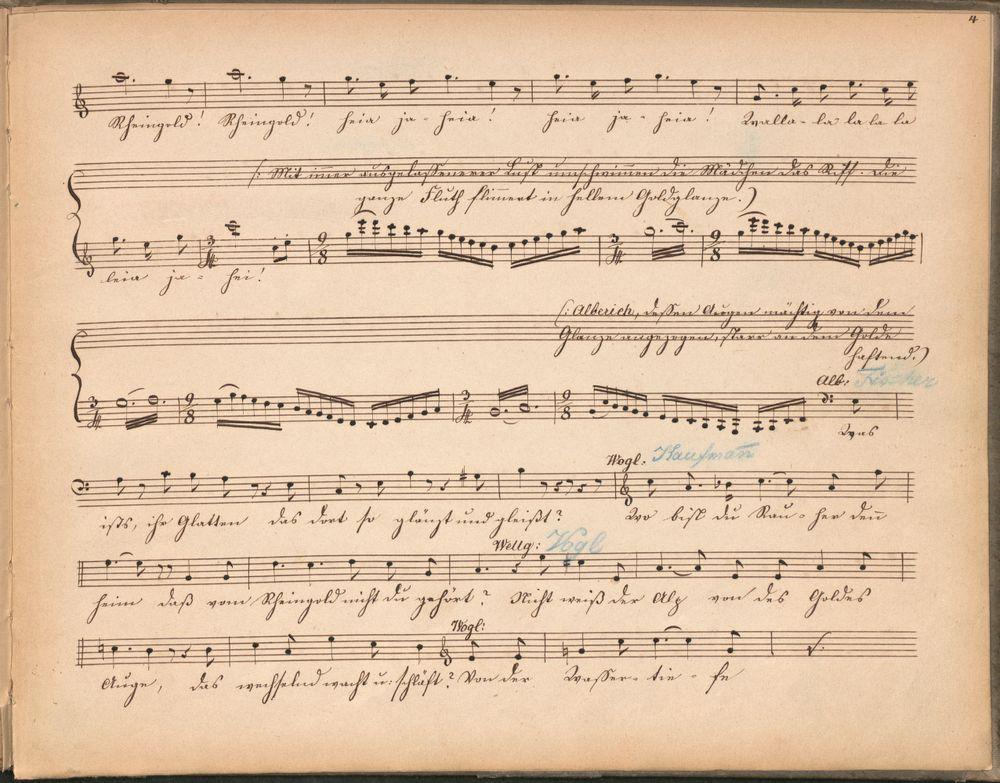 4
Rheingold! Rheingold! heia ja-heia! heia ja-heia! Walla-la la la la
(: Mit immer ausgelassenerer Lust umschwimmen die Mädchen das Riff. Die
ganze Fluth flimmert in hellem Goldglanze.)
leia ja-hei!
(: Alberich, dessen Augen mächtig von dem
Glanze angezogen, starr an dem Golde
haftend.)
Alb: Fischer
Was
Wogl: Kaufmañ
ists, ihr Glatten das dort so glänzt und gleißt? Wo bist du Rau-her deñ
Wellg: Vogl
heim daß vom Rheingold nicht du gehört? Nicht weiß der Alp von des Goldes
Wogl:
Auge, das wechselnd wacht u: schläft? Von der Wasser-tie-fe